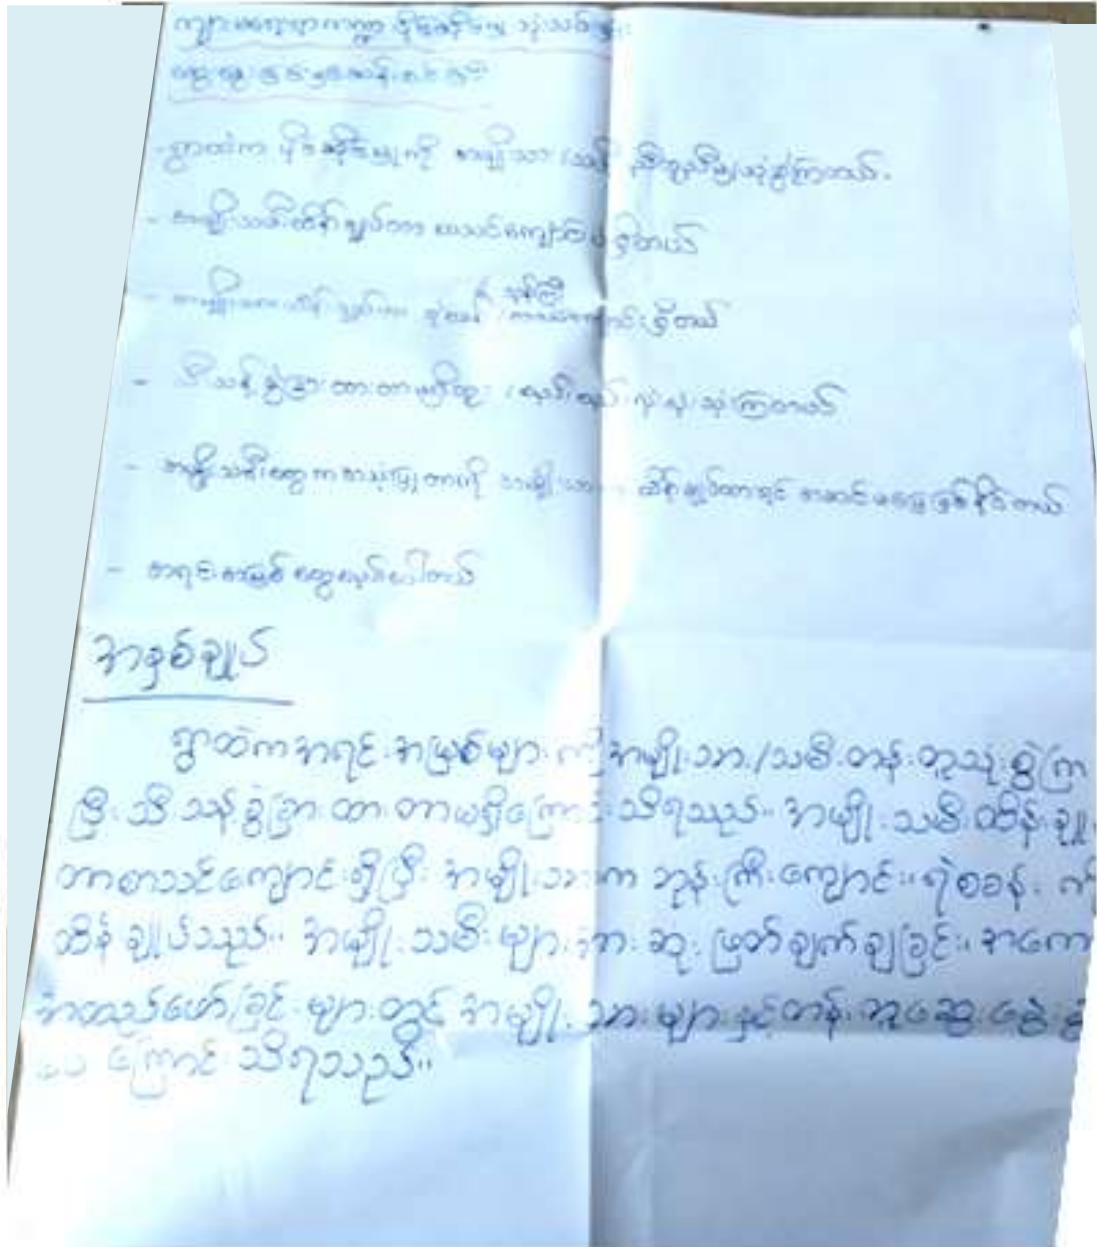 ကျား၊မရေးရာကဏ္ဍ ပိုင်ဆိုင်မှု သုံးသပ်
- ရွာထဲက ပိုင်ဆိုင်မှုကို အမျိုးသား/သမီး ညီတူညီမျှသုံးစွဲကြတယ်။
- အမျိုးသမီးထိန်းချုပ်တာ စာသင်ကျောင်းပဲ ရှိတယ်
ဘုန်းကြီး
- အမျိုးသားထိန်းချုပ်တာ ကျောင်းရှိတယ်
- သီးသန့်ခွဲခြားထားတာမရှိဘူး သုံးကြတယ်
- အမျိုးသမီးတွေက အသုံးပြုတာကို အမျိုးသား ထိန်းချုပ်ထားရင် အဆင်မပြေဖြစ်နိုင်တယ်
- အရင်းအမြစ်တွေပေါ်တယ်
အနှစ်ချုပ်
ရွာထဲက အရင်းအမြစ်များကို အမျိုးသား/သမီး တန်းတူသုံးစွဲကြ
ပြီး သီးသန့်ခွဲခြားထားတာမရှိကြောင်း သိရသည်။ အမျိုးသမီးထိန်းချု
တာစာသင်ကျောင်းရှိပြီး အမျိုးသားက ဘုန်းကြီးကျောင်း၊ ရဲစခန်း
ထိန်းချုပ်သည်။ အမျိုးသမီးများအား ဆုံးဖြတ်ချက်ချခြင်း၊ အကော
အထည်ဖော်ခြင်းများတွင် အမျိုးသားများနှင့်တန်းတူဆွေးနွေး
ကြောင်း သိရသည်။